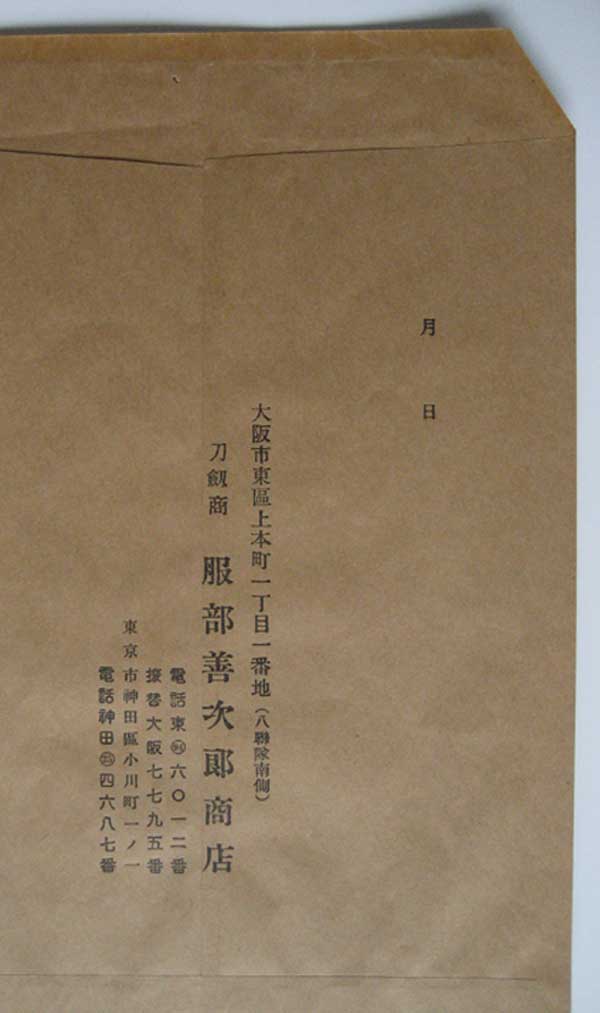 月 日
大阪市東區上本町一丁目一番地(八聯隊南側)
刀劔商 服部善次郎商店
電話東六〇一二番
振替大阪七七九五番
東京市神田區小川町一ノ一
電話神田四六八七番